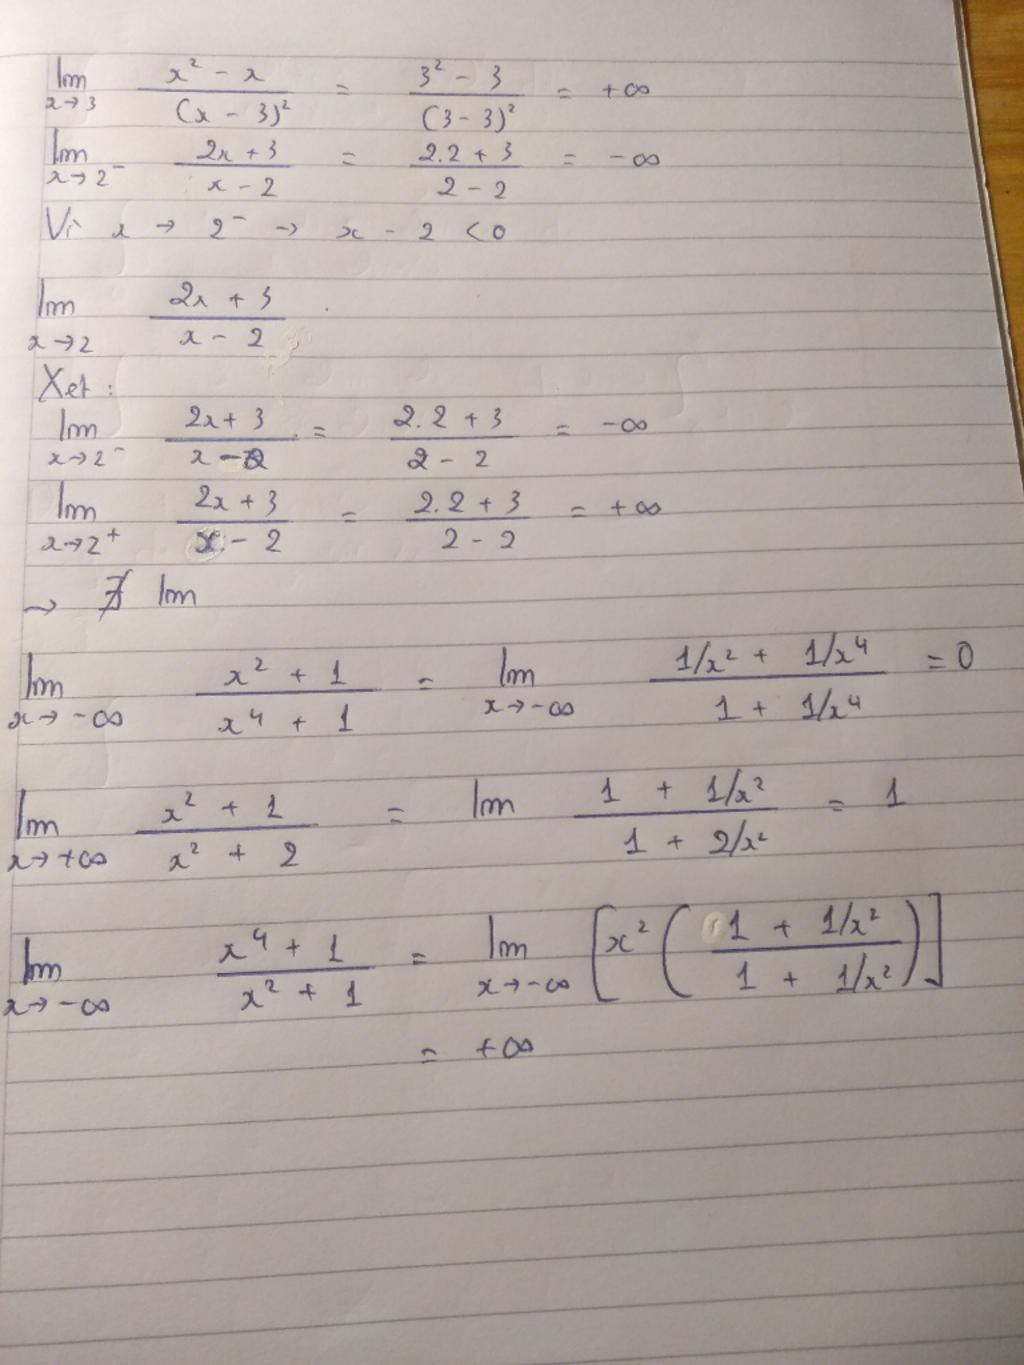 lim x→3 (x² - x)/((x - 3)²) = (3² - 3)/((3 - 3)²) = +∞
lim x→2⁻ (2x + 3)/(x - 2) = (2.2 + 3)/(2 - 2) = -∞
Vì x → 2⁻ → x - 2 < 0
lim x→2 (2x + 3)/(x - 2)
Xét :
lim x→2⁻ (2x + 3)/(x - 2) = (2.2 + 3)/(2 - 2) = -∞
lim x→2⁺ (2x + 3)/(x - 2) = (2.2 + 3)/(2 - 2) = +∞
→ ∄ lim
lim x→-∞ (x² + 1)/(x⁴ + 1) = lim x→-∞ (1/x² + 1/x⁴)/(1 + 1/x⁴) = 0
lim x→+∞ (x² + 1)/(x² + 2) = lim (1 + 1/x²)/(1 + 2/x²) = 1
lim x→-∞ (x⁴ + 1)/(x² + 1) = lim x→-∞ [x² ((1 + 1/x²)/(1 + 1/x²))]
= +∞